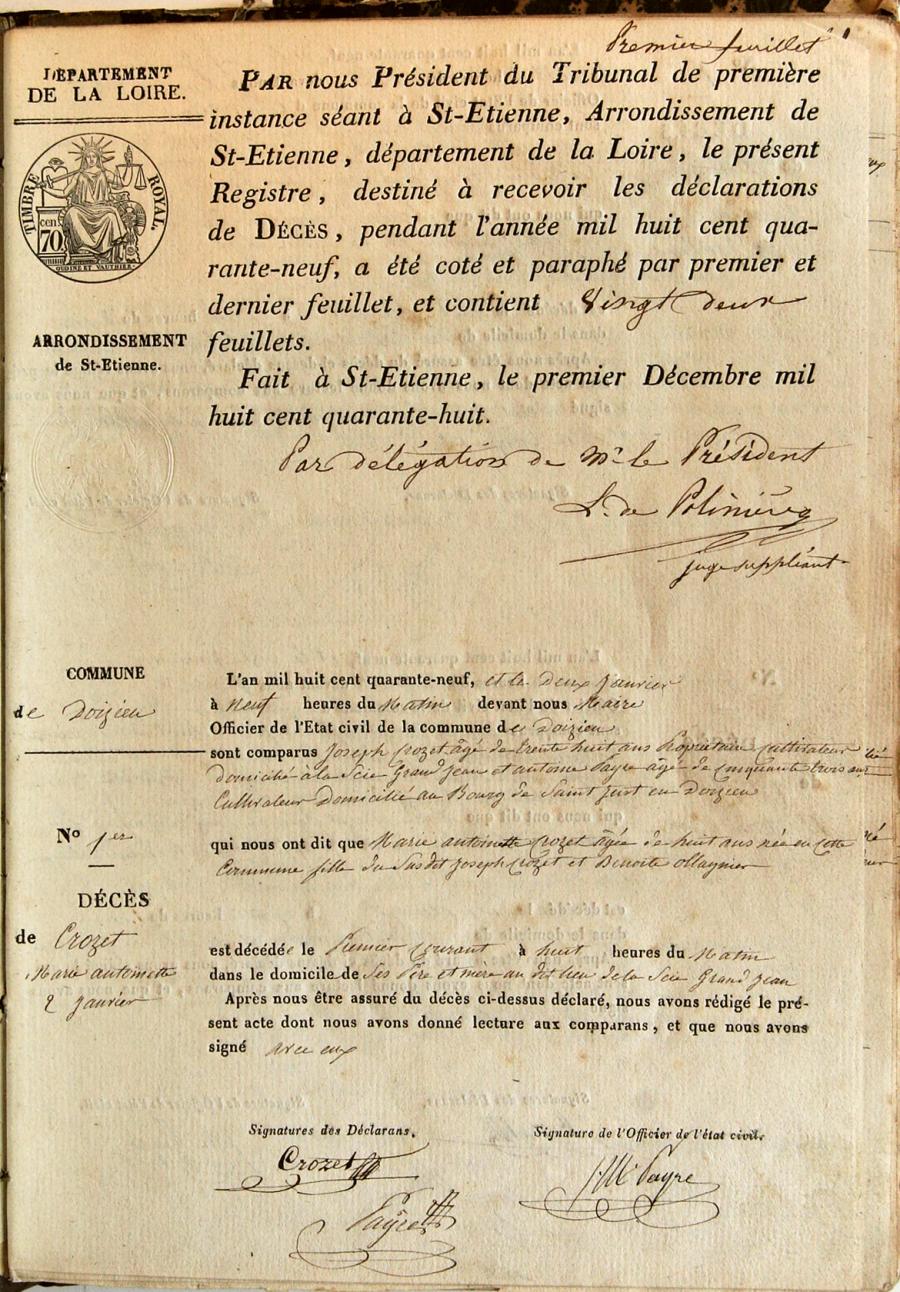 Premier feuillet
DÉPARTEMENT
DE LA LOIRE.
TIMBRE ROYAL.
cen. 70
OUDINÉ ET VAUTHIER
ARRONDISSEMENT
de St-Etienne.
PAR nous Président du Tribunal de première
instance séant à St-Etienne, Arrondissement de
St-Etienne, département de la Loire, le présent
Registre, destiné à recevoir les déclarations
de DÉCÈS, pendant l'année mil huit cent qua-
rante-neuf, a été coté et paraphé par premier et
dernier feuillet, et contient Vingt deux
feuillets.
Fait à St-Etienne, le premier Décembre mil
huit cent quarante-huit.
Par délégation de Mr. le Président
L. de Polinière
juge suppléant
COMMUNE
de Doizieu
L'an mil huit cent quarante-neuf, et le Deux Janvier
à Neuf heures du Matin devant nous Maire
Officier de l'Etat civil de la commune de Doizieu
sont comparus Joseph Crozet âgé de trente huit ans Propriétaire cultivateur
Domicilié à la Scie Grand Jean et antoine Payre âgé de cinquante trois ans
Cultivateur Domicilié au Bourg de Saint Just en Doizieu
No 1er
qui nous ont dit que Marie antoinette Crozet âgée de huit ans née en cette
Commune fille du Susdit Joseph Crozet et Benoite ollagnier
DÉCÈS
de Crozet
Marie antoinette
2 Janvier
est décédée le Premier Courant à huit heures du Matin
dans le domicile de Ses Père et mère au dit lieu de la Scie Grand Jean
Après nous être assuré du décès ci-dessus déclaré, nous avons rédigé le pré-
sent acte dont nous avons donné lecture aux comparans, et que nous avons
signé avec eux
Signatures des Déclarans,
Signature de l'Officier de l'état civil,
Crozet
Payre
Payre